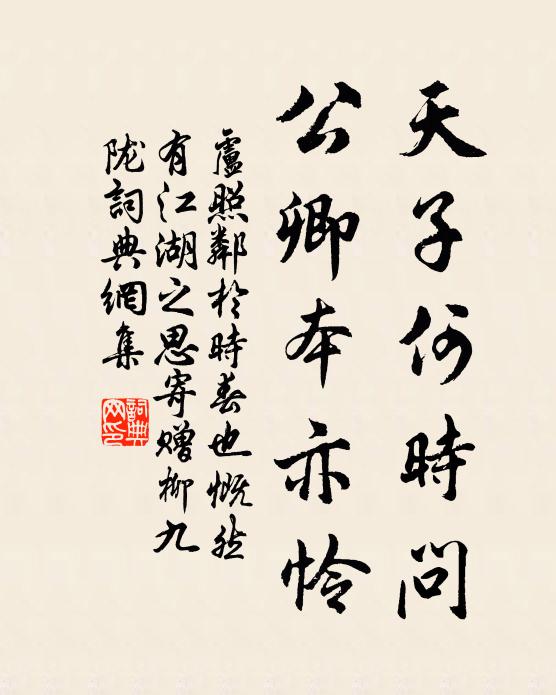 天子何時問
公卿本亦憐
盧照鄰於時春也慨然
有江湖之思寄贈柳九
陇詞典網集
詞典
网印